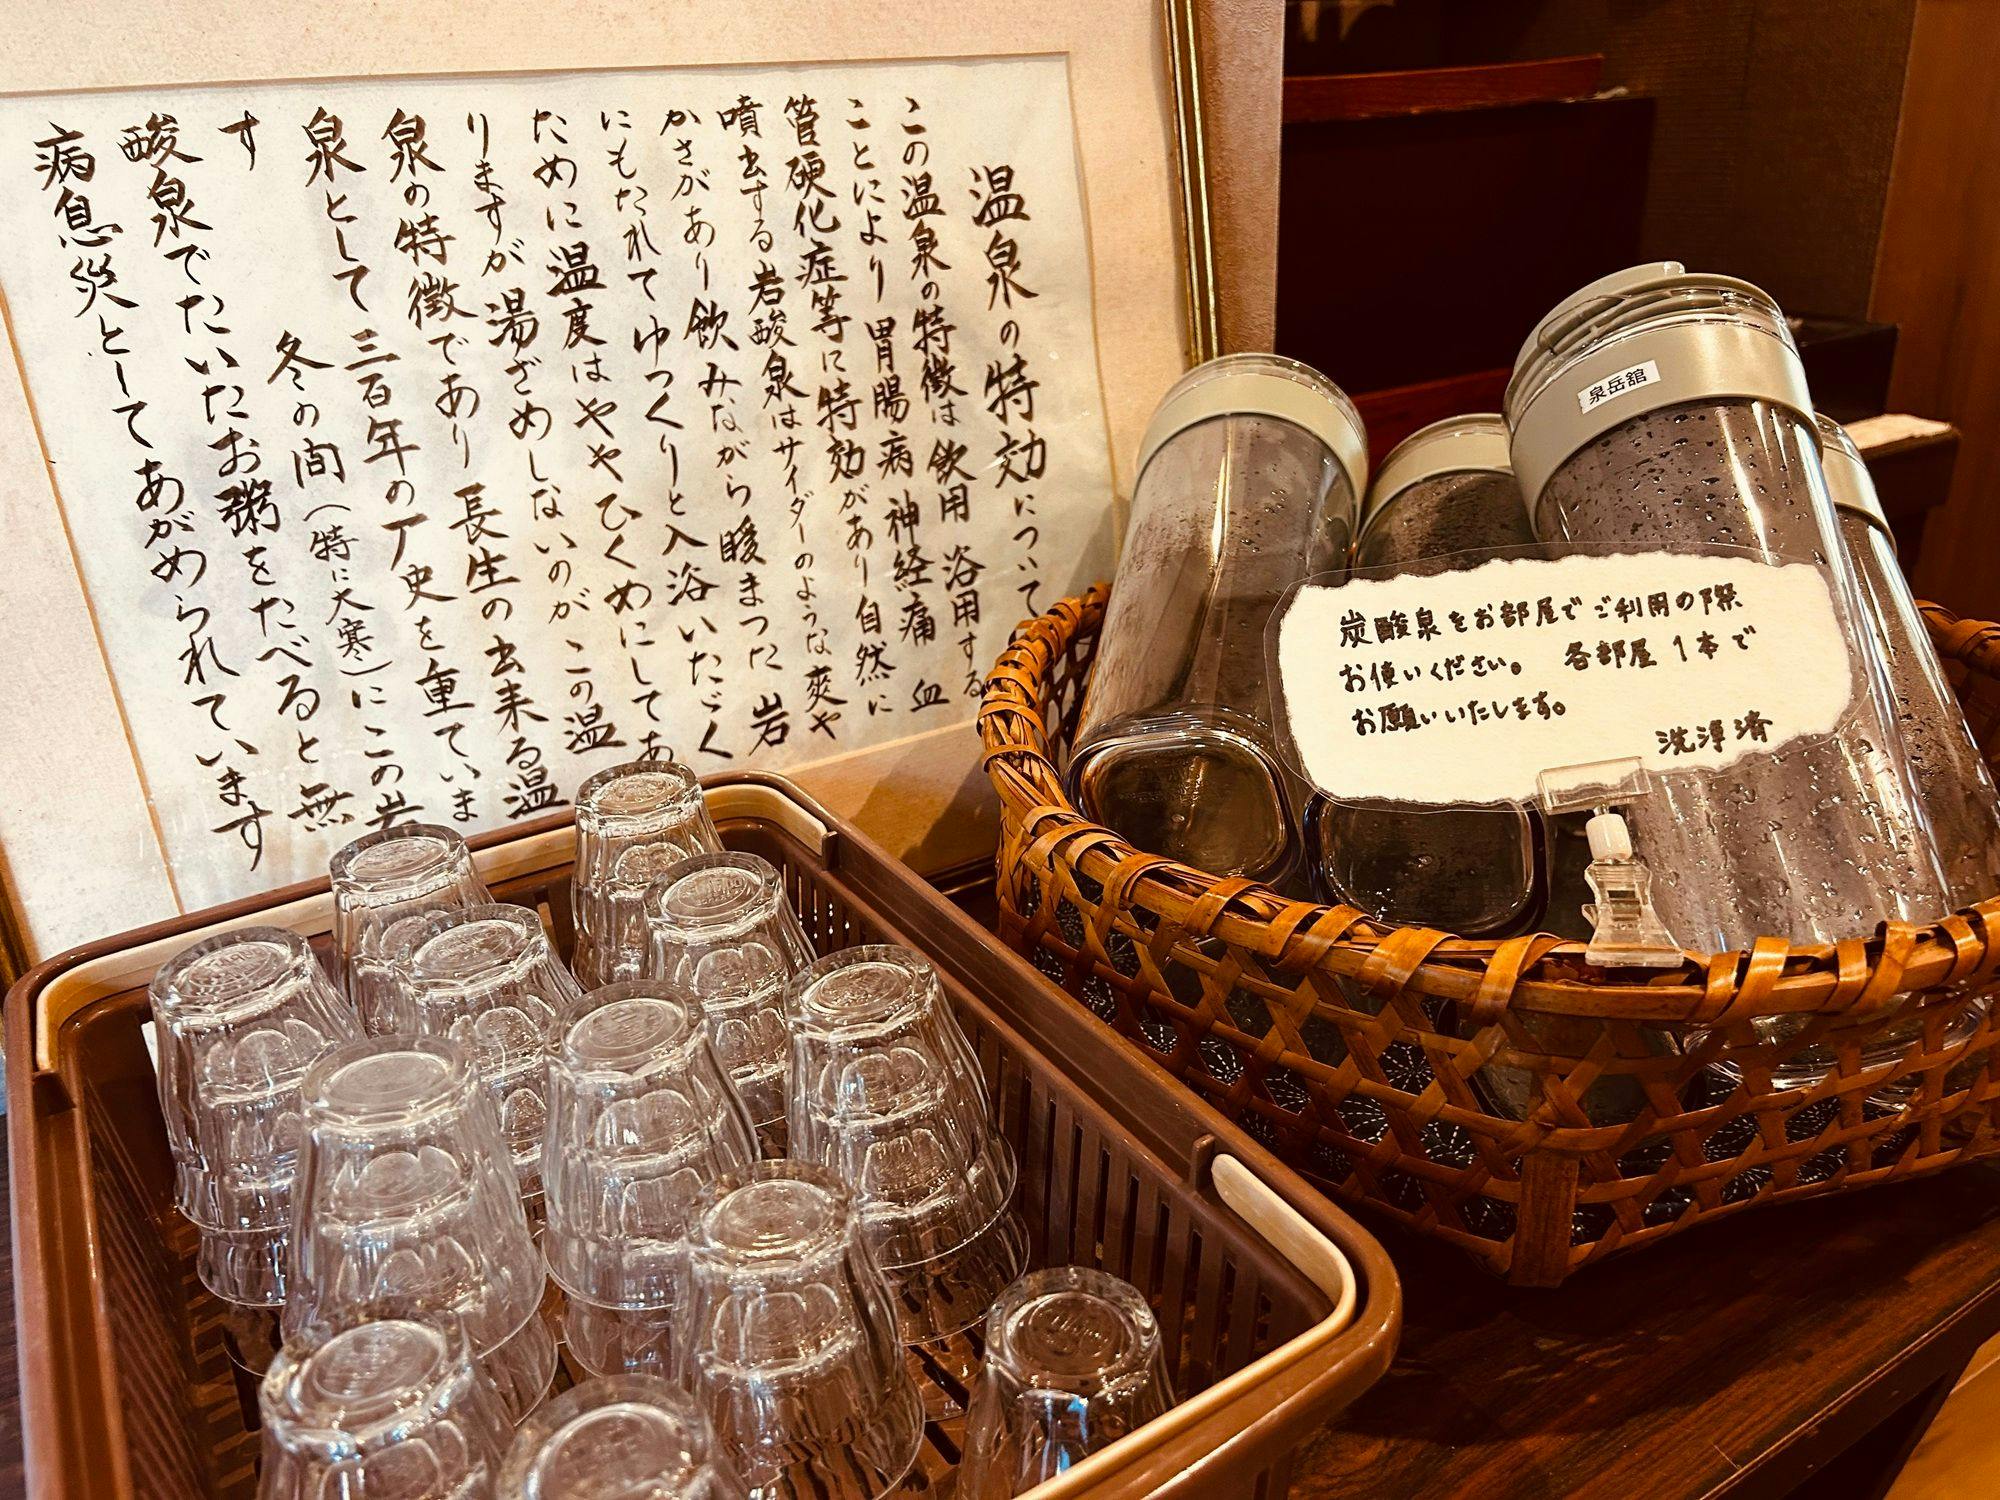 温泉の特効について
この温泉の特徴は飲用 浴用する
ことにより 胃腸病 神経痛 血
管硬化症等に特効があり自然に
噴出する岩酸泉はサイダーのような爽や
かさがあり飲みながら暖まった岩
にもたれてゆっくりと入浴いたゞく
ために温度はやゝひくめにしてあ
りますが湯ざめしないのがこの温
泉の特徴であり 長生の出来る温
泉として三百年の歴史を重ていま
す 冬の間(特に大寒)にこの岩
酸泉でたいたお粥をたべると無
病息災としてあがめられています
泉岳舘
炭酸泉をお部屋でご利用の際
お使いください。 各部屋1本で
お願いいたします。
洗浄済